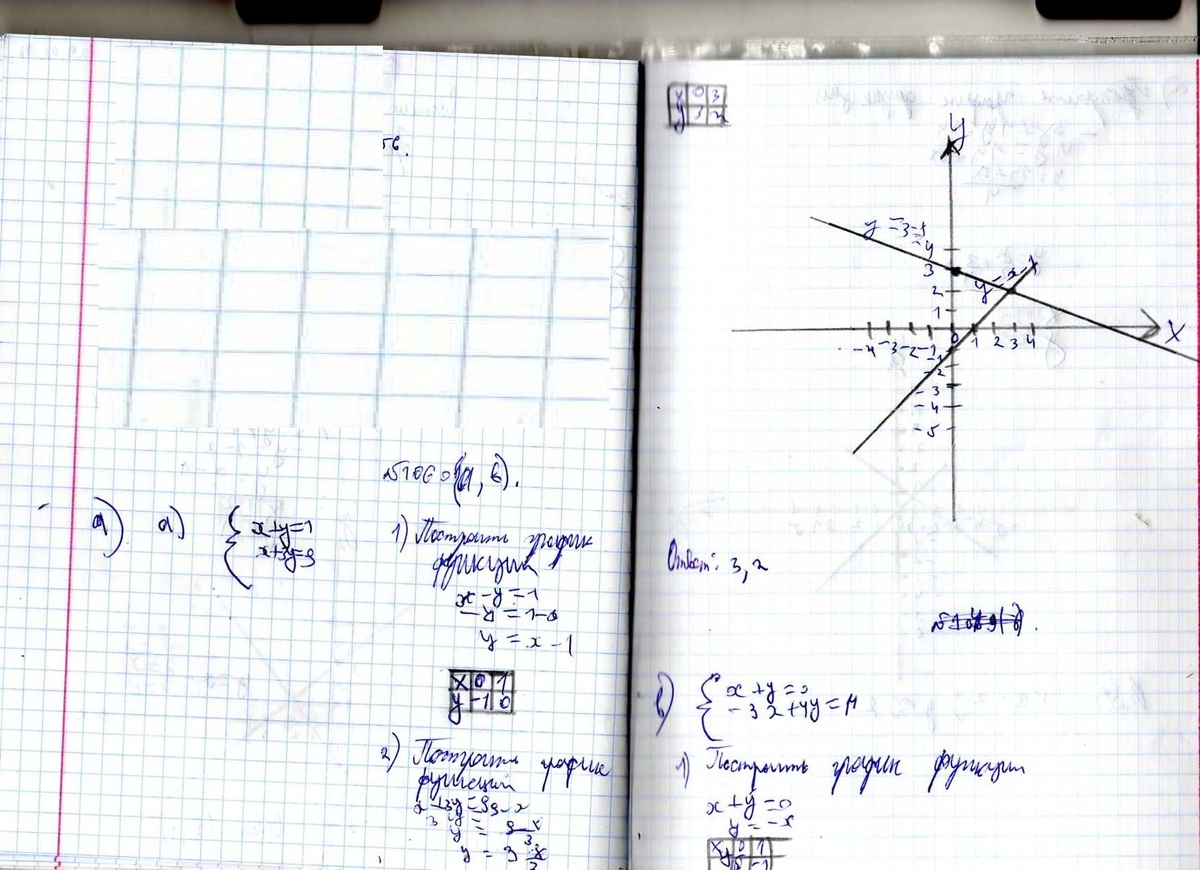 №1060 (а, в).
а) а) { x+y=1
x+3y=9
1) Построить график
функции
x-y=1
-y=1-x
y=x-1
x 0 1
y -1 0
2) Построить график
функции
x+3y=9
y = 3
x 0 3
y 3 2
y
4
3
2
1
y=x-1
-4 -3 -2 -1 0 1 2 3 4 x
-1
-2
-3
-4
-5
Ответ: 3, 2
в) { x+y=0
-3x+4y=14
1) Построить график функции
x+y=0
y=-x
x 0 1
y 0 -1